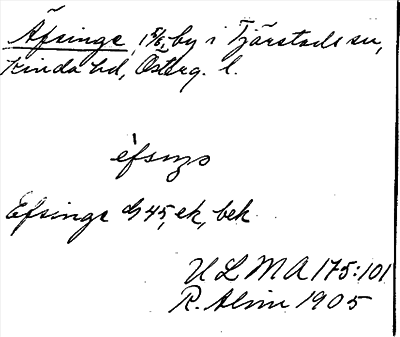 Äfsinge, 15/6, by i Tjärstads sn,
Kinda hd, Österg. l.
èfsıŋə
Efsinge dg 45, ek, bek.
ULMA 175:101
R. Alm 1905